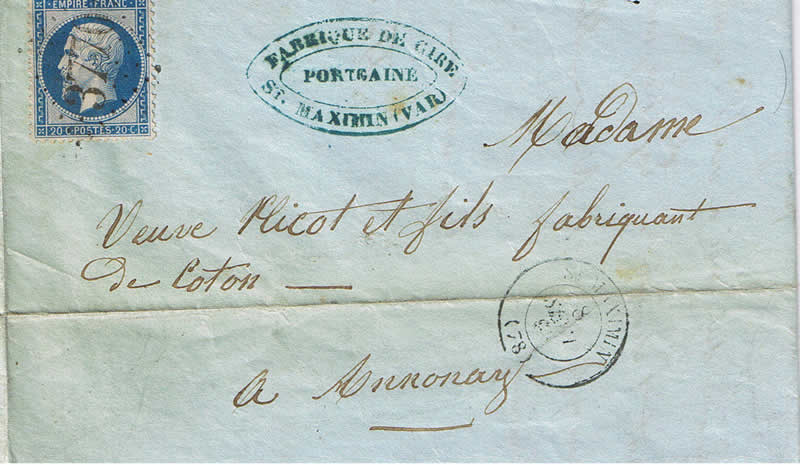 EMPIRE FRANC
3771
20 C POSTES 20 C
FABRIQUE DE CIRE
PORTGAINE
ST. MAXIMIN (VAR)
Madame
Veuve Plicot et fils fabriquant
de Coton —
a Annonay
ST MAXIMIN
(78)